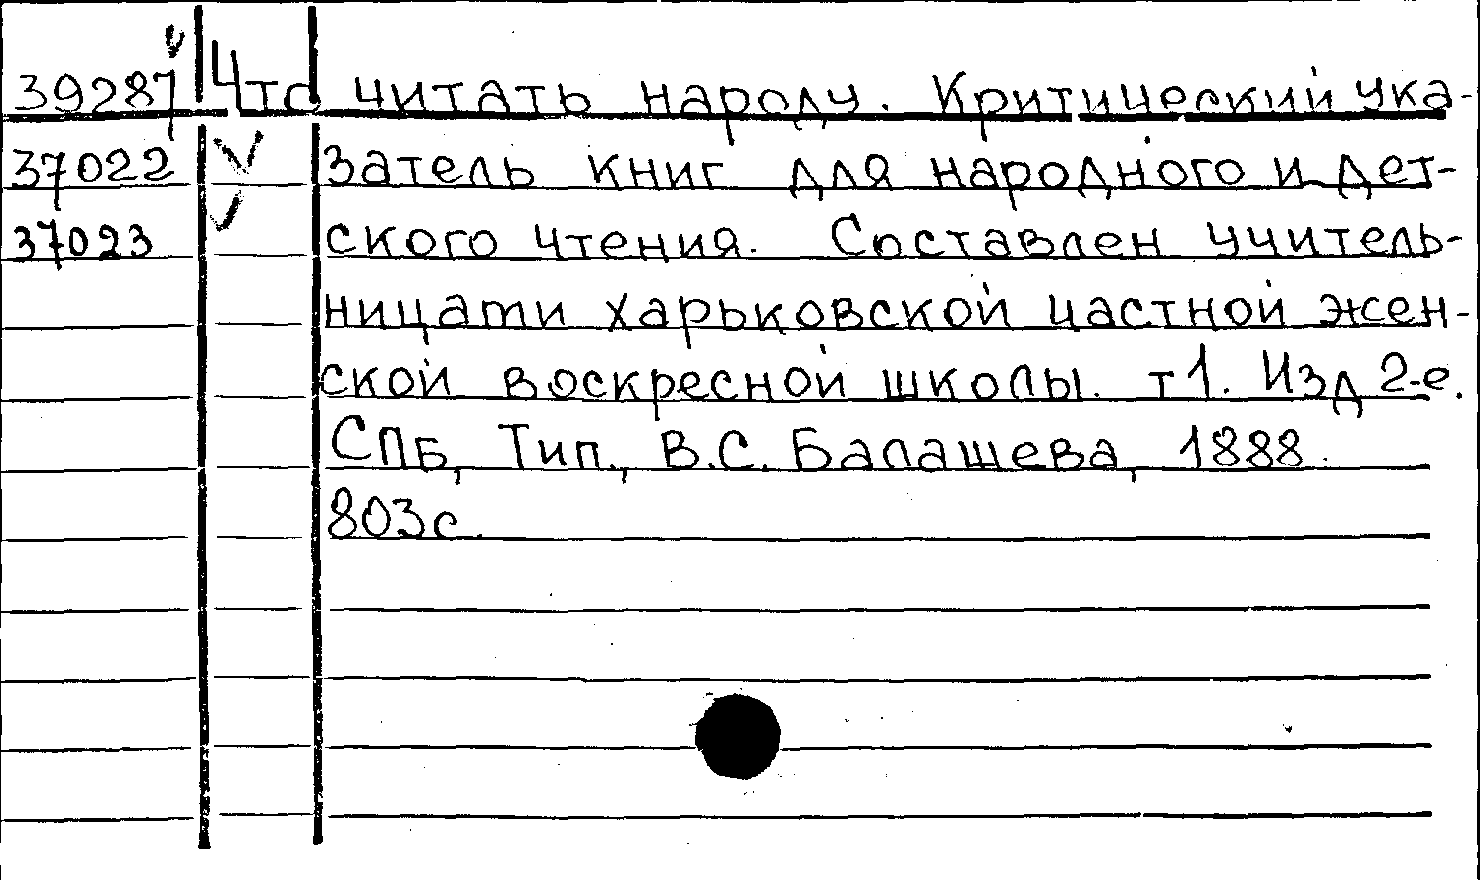 39287 Что читать народу. Критический ука-
37022 V затель книг для народного и дет-
37023 V ского чтения. Составлен учитель-
ницами харьковской частной жен-
ской воскресной школы. т1. Изд 2-е.
СПБ, Тип., В.С. Балашева, 1888.
803с.